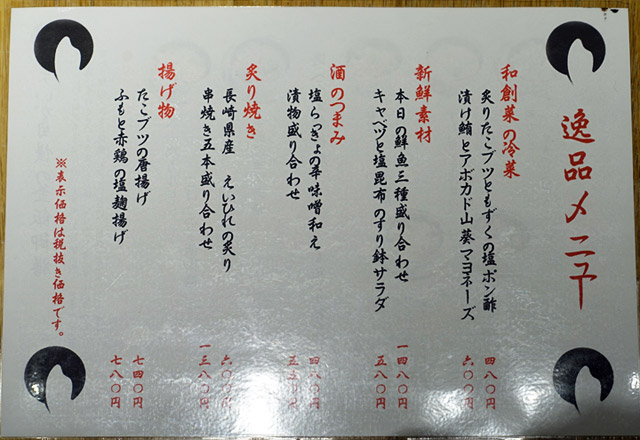 逸品メニュー
和創菜の冷菜
炙りたこブツともずくの塩ポン酢 四八〇円
漬け鮪とアボカド山葵マヨネーズ 六〇〇円
新鮮素材
本日の鮮魚三種盛り合わせ 一四八〇円
キャベツと塩昆布のすり鉢サラダ 五八〇円
酒のつまみ
塩らっきょの辛味噌和え 四八〇円
漬物盛り合わせ
炙り焼き
長崎県産 えいひれの炙り 六〇〇円
串焼き五本盛り合わせ 一三八〇円
揚げ物
たこブツの唐揚げ 七四〇円
ふもと赤鶏の塩麹揚げ 七八〇円
※表示価格は税抜き価格です。